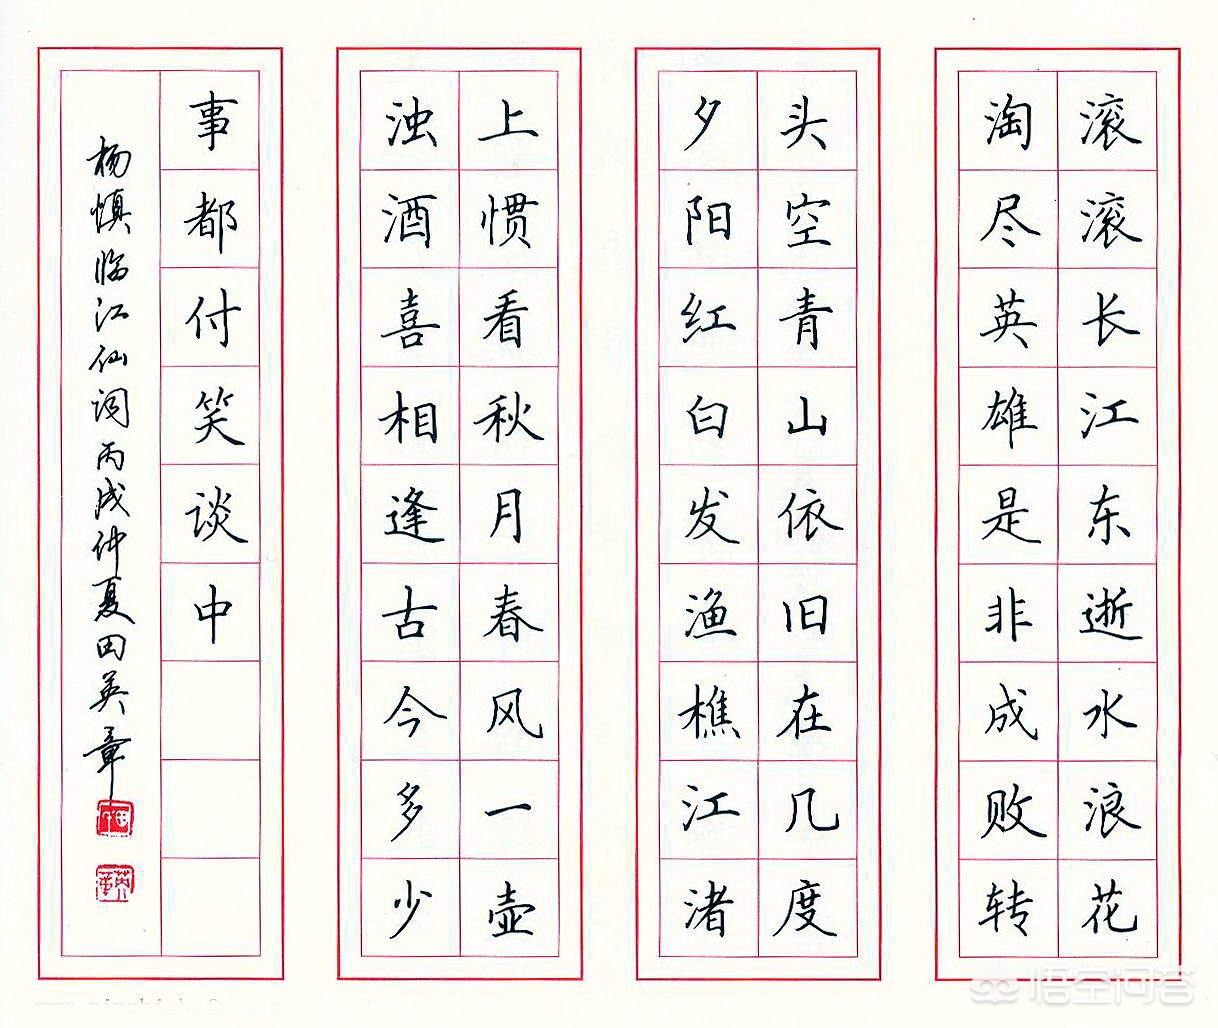 滚滚长江东逝水浪花
淘尽英雄是非成败转
头空青山依旧在几度
夕阳红白发渔樵江渚
上惯看秋月春风一壶
浊酒喜相逢古今多少
事都付笑谈中
杨慎临江仙词丙戌仲夏田英章
英章
悟空问答